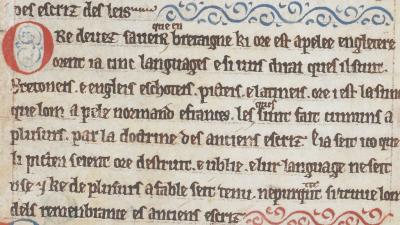 Des escriz des leis
que en
Ore deuez saueir bretaigne ki ore est apelee engletere
orent ia cinc languages e si uus dirai ques il sunt.
Bretoneis. e engleis eschoteis. picteis. e latineis. ore i est la sime
que lom apele normand e frances. les ques sunt fait cumuns a
plusurs. par la doctrine des anciens escriz. E ia seit ico que
li picteis seient ore destruit. e ublie. e lur language ne seit
use. y ke de plusurs a fable seit tenu. nepurquant si truue lom
dels remembrance es anciens escriz